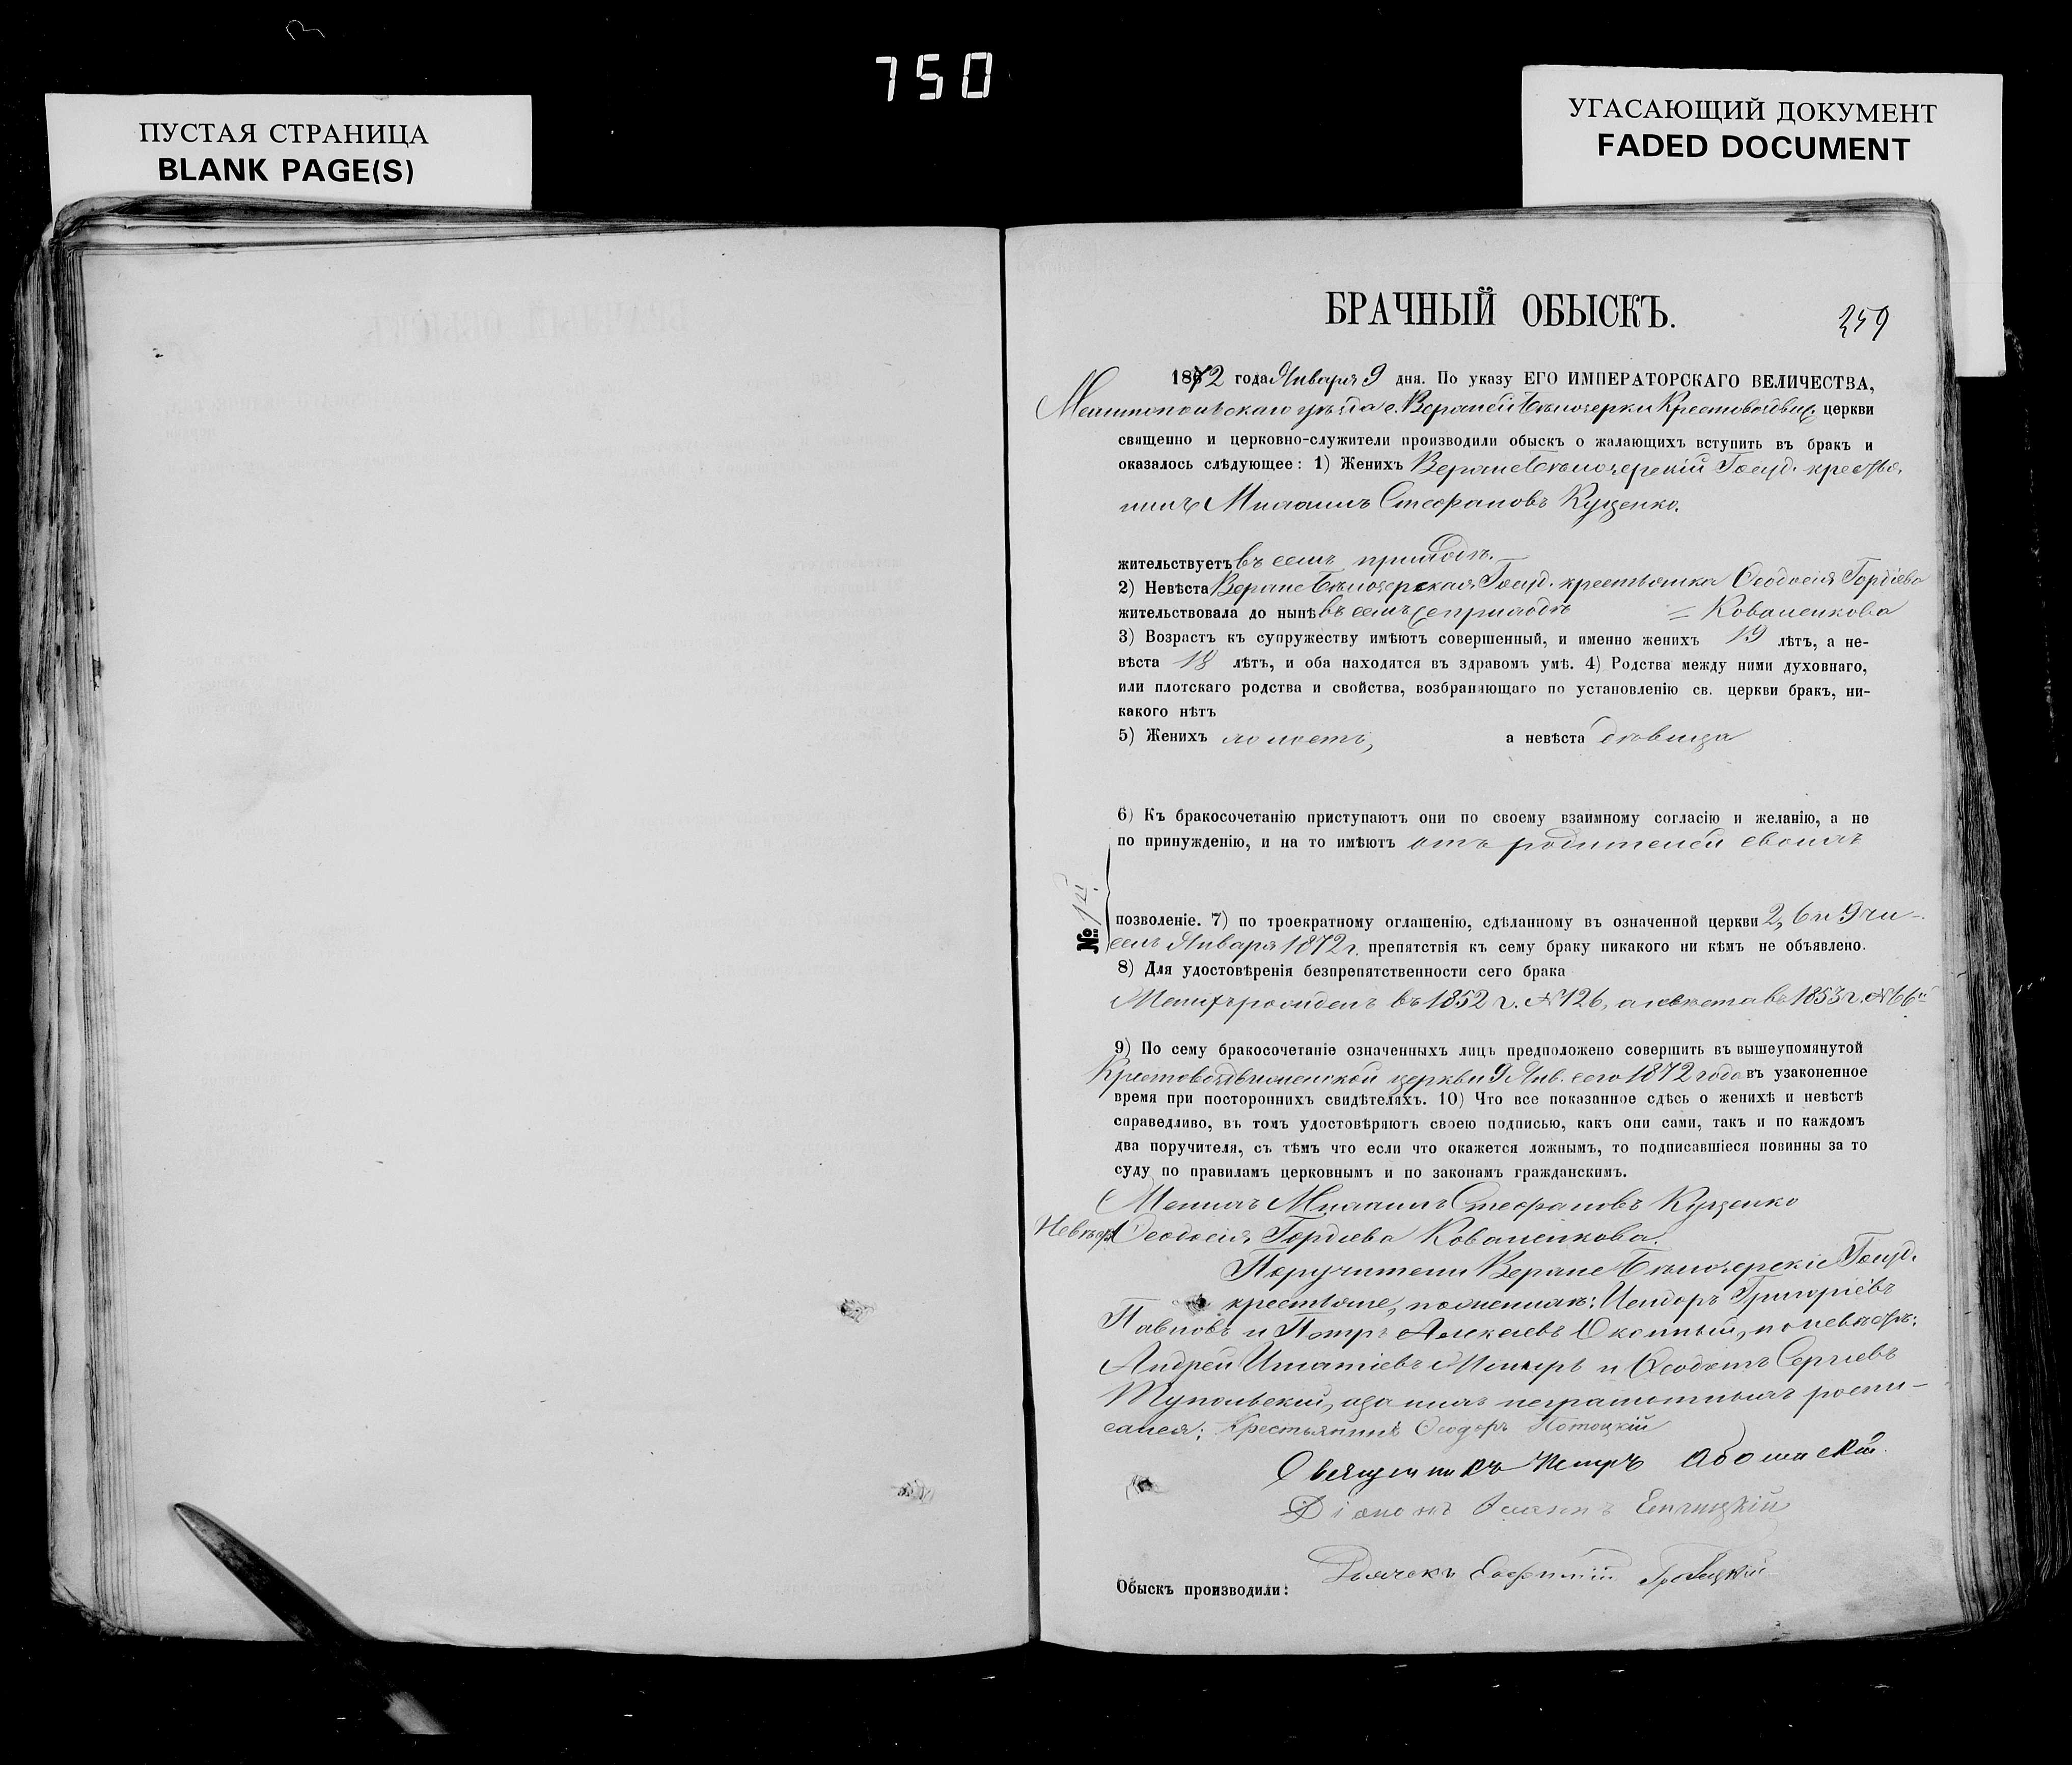 750
ПУСТАЯ СТРАНИЦА
BLANK PAGE(S)
УГАСАЮЩИЙ ДОКУМЕНТ
FADED DOCUMENT
БРАЧНЫЙ ОБЫСКЪ.
259
1872 года Января 9 дня. По указу ЕГО ИМПЕРАТОРСКАГО ВЕЛИЧЕСТВА,
Мелитопольскаго уѣзда с. Верхней Бѣлозерки Крестовоздвиж. церкви
священно и церковно-служители производили обыскъ о жалающихъ вступить въ бракъ и
оказалось слѣдующее: 1) Женихъ Верхне Бѣлозерскій Госуд. крестья-
нинъ Михаилъ Стефановъ Куценко.
жительствуетъ въ семъ приходѣ.
2) Невѣста Верхне Бѣлозерская Госуд. крестьянка Ѳеодосія Гордіева
жительствовала до нынѣ въ семъ же приходѣ = Коваленкова
3) Возрастъ къ супружеству имѣютъ совершенный, и именно женихъ 19 лѣтъ, а не-
вѣста 18 лѣтъ, и оба находятся въ здравомъ умѣ. 4) Родства между ними духовнаго,
или плотскаго родства и свойства, возбраняющаго по установленію св. церкви бракъ, ни-
какого нѣтъ
5) Женихъ холостъ, а невѣста дѣвица
6) Къ бракосочетанію приступаютъ они по своему взаимному согласію и желанію, а не
по принужденію, и на то имѣютъ отъ родителей своихъ
№ 14.
позволеніе. 7) по троекратному оглашенію, сдѣланному въ означенной церкви 2, 6 и 9 чи-
селъ Января 1872 г. препятствія къ сему браку никакого ни кѣмъ не объявлено.
8) Для удостовѣренія безпрепятственности сего брака
Женихъ рожденъ въ 1852 г. № 126, а невѣста въ 1853 г. № 66й
9) По сему бракосочетаніе означенныхъ лицъ предположено совершить въ вышеупомянутой
Крестовоздвиженской церкви 9 Янв. сего 1872 года въ узаконенное
время при постороннихъ свидѣтеляхъ. 10) Что все показанное сдѣсь о женихѣ и невѣстѣ
справедливо, въ томъ удостовѣряютъ своею подписью, какъ они сами, такъ и по каждомъ
два поручителя, съ тѣмъ что если что окажется ложнымъ, то подписавшіеся повинны за то
суду по правиламъ церковнымъ и по законамъ гражданскимъ.
Женихъ Михаилъ Стефановъ Куценко
Невѣста Ѳеодосія Гордіева Коваленкова.
Поручители Верхне Бѣлозерскіе Госуд.
крестьяне, по женихѣ: Исидоръ Григоріевъ
Павловъ и Петръ Алексѣевъ Охонный, по невѣстѣ:
Андрей Игнатіевъ и Ѳеодотъ Сергіевъ
а за нихъ неграмотныхъ роспи-
сался: Крестьянинъ Ѳеодоръ Потоцкій
Священникъ Петръ
Діаконъ
Дьячекъ Евфимій
Обыскъ производили: